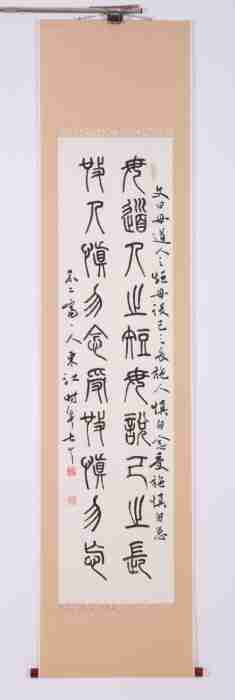 文曰毋道人之短毋説己之長施人慎勿念受施慎勿忘
毋道人之短毋說己之長
施人慎勿念受施慎勿忘
不二人東江時年七